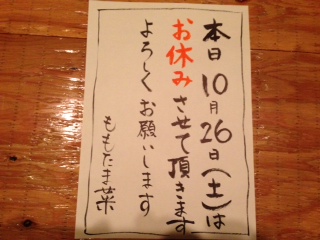 本日10月26日(土)は
お休みさせて頂きます
よろしくお願いします
ももたま菜